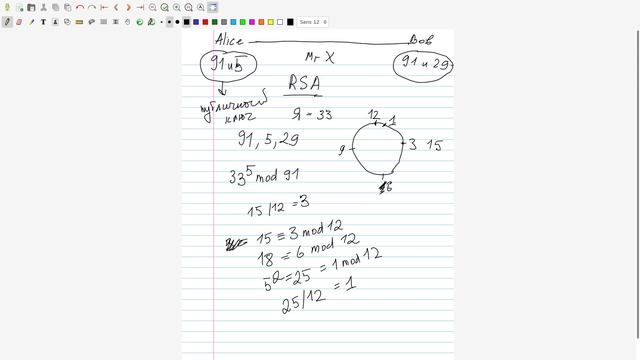 Sans 12
Alice Bob
91 и 5 Mr X 91 и 29
RSA
публичный
ключ
Я = 33
12 1
91, 5, 29
9 3 15
6
33⁵ mod 91
15/12 = 3
15 ≡ 3 mod 12
18 = 6 mod 12
5² = 25 = 1 mod 12
25/12 = 1